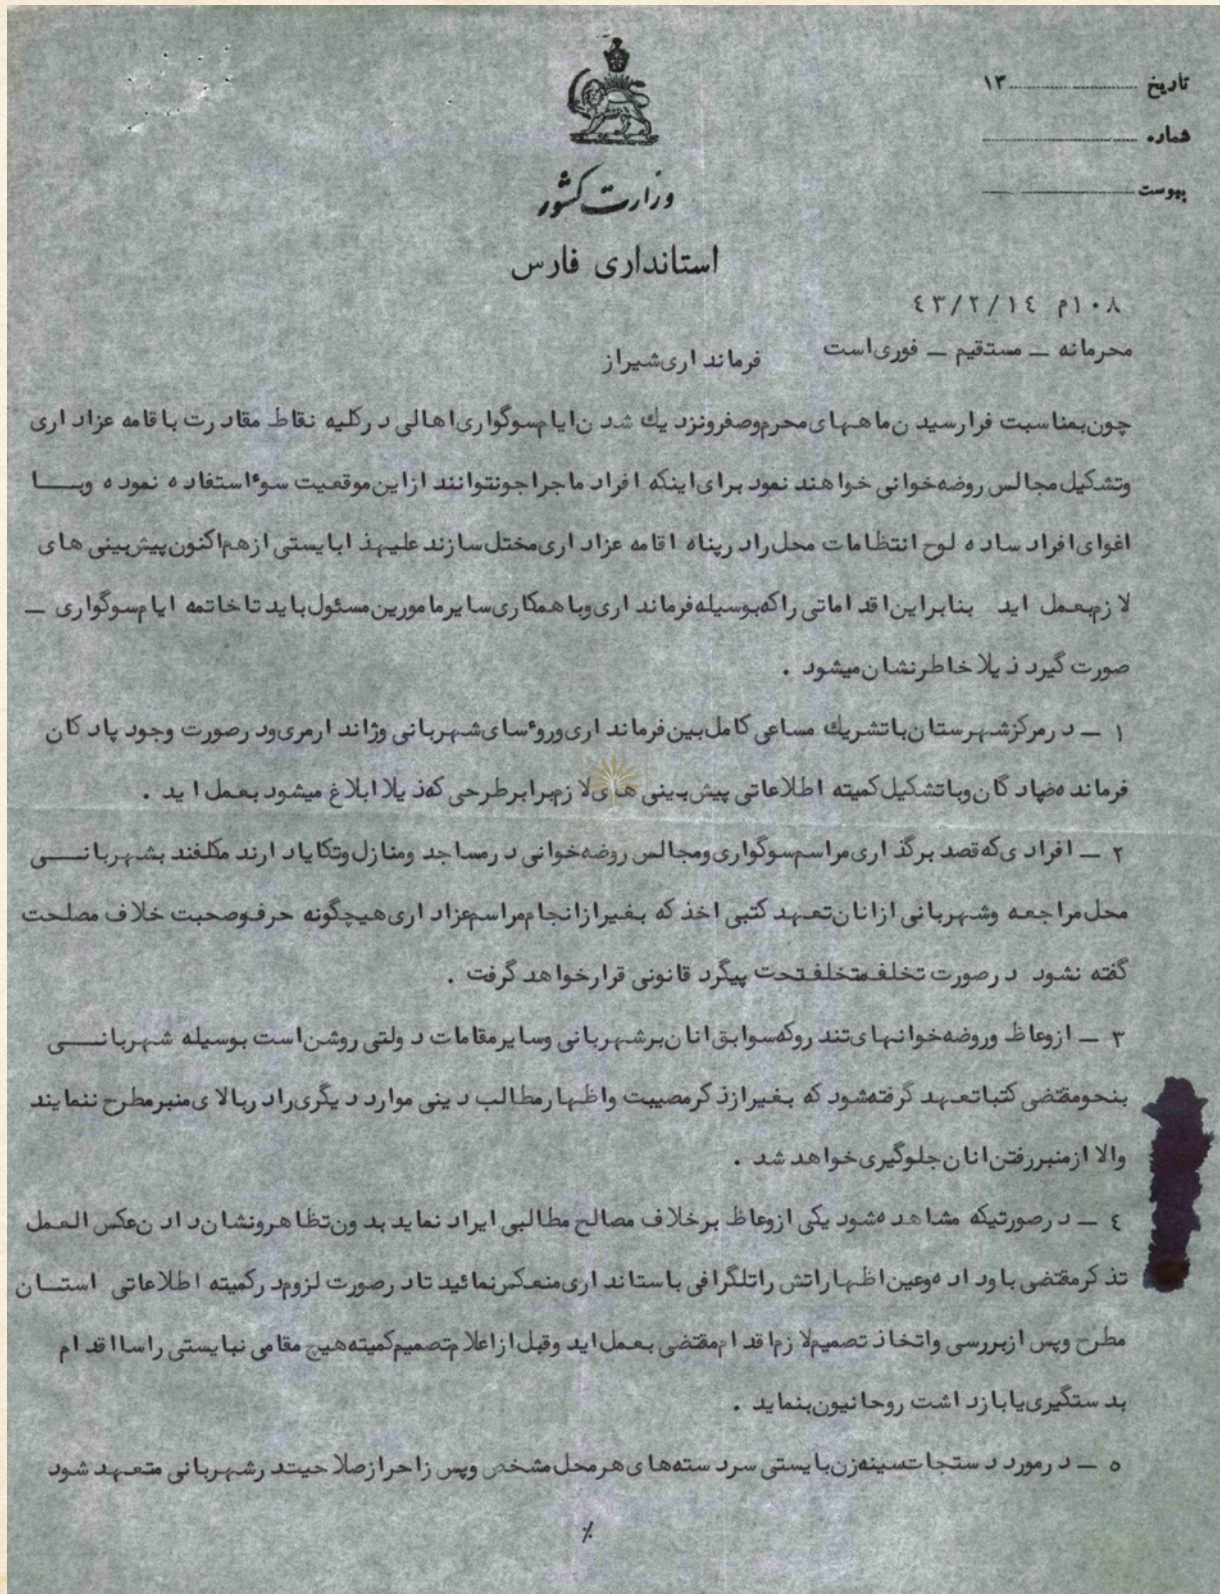 تاریخ ........................ ۱۳
شماره ........................
پیوست ........................
وزارت کشور
استانداری فارس
۱۰۸م ۴۳/۲/۱۴
محرمانه – مستقیم – فوری است
فرمانداری شیراز
چون بمناسبت فرارسیدن ماههای محرم وصفر ونزدیك شدن ایام سوگواری اهالی درکلیه نقاط مقادرت باقامه عزاداری
وتشکیل مجالس روضه خوانی خواهند نمود برای اینکه افراد ماجراجو نتوانند ازاین موقعیت سوءاستفاده نموده وبا
اغوای افراد ساده لوح انتظامات محل رادرپناه اقامه عزاداری مختل سازند علیهذا بایستی ازهم اکنون پیش بینی های
لازم بعمل اید بنابراین اقداماتی راکه بوسیله فرمانداری وباهمکاری سایرمامورین مسئول باید تاخاتمه ایام سوگواری –
صورت گیرد ذیلا خاطرنشان میشود .
۱ – درمرکزشهرستان باتشریك مساعی کامل بین فرمانداری وروءسای شهربانی وژاندارمری ودرصورت وجود پادکان
فرمانده پادگان وباتشکیل کمیته اطلاعاتی پیش بینی های لازم برابرطرحی که ذیلا ابلاغ میشود بعمل اید .
۲ – افرادی که قصد برگذاری مراسم سوگواری ومجالس روضه خوانی درمساجد ومنازل وتکایا دارند مکلفند بشهربانی
محل مراجعه وشهربانی ازانان تعهد کتبی اخذ که بغیرازانجام مراسم عزاداری هیچگونه حرف وصحبت خلاف مصلحت
گفته نشود درصورت تخلف متخلف تحت پیگرد قانونی قرارخواهد گرفت .
۳ – ازوعاظ وروضه خوانهای تندروکه سوابق انان برشهربانی وسایرمقامات دولتی روشن است بوسیله شهربانی
بنحومقتضی کتبا تعهد گرفته شود که بغیرازذکرمصیبت واظهارمطالب دینی موارد دیگری رادربالای منبرمطرح ننمایند
والا ازمنبررفتن انان جلوگیری خواهد شد .
۴ – درصورتیکه مشاهده شود یکی ازوعاظ برخلاف مصالح مطالبی ایراد نماید بدون تظاهرونشان دادن عکس العمل
تذکرمقتضی باو داده وعین اظهاراتش راتلگرافی باستانداری منعکس نمائید تادرصورت لزوم درکمیته اطلاعاتی استان
مطرح وپس ازبررسی واتخاذ تصمیم لازم اقدام مقتضی بعمل اید وقبل ازاعلام تصمیم کمیته هیچ مقامی نبایستی راسا اقدام
بدستگیری یابازداشت روحانیون بنماید .
۵ – درمورد دستجات سینه زن بایستی سردسته های هرمحل مشخص وپس زاحرازصلاحیت درشهربانی متعهد شود
٪